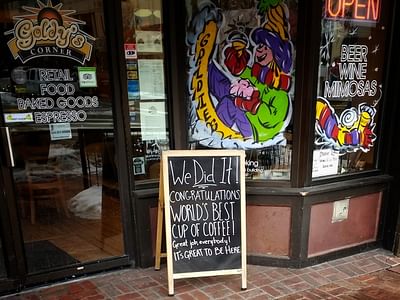 Goldy's
CORNER
RETAIL
FOOD
BAKED GOODS
ESPRESSO
OPEN
BEER
WINE
MIMOSAS
We Did It!
CONGRATULATIONS
WORLD'S BEST
CUP OF COFFEE!
Great job, everybody!
IT'S GREAT TO BE HERE